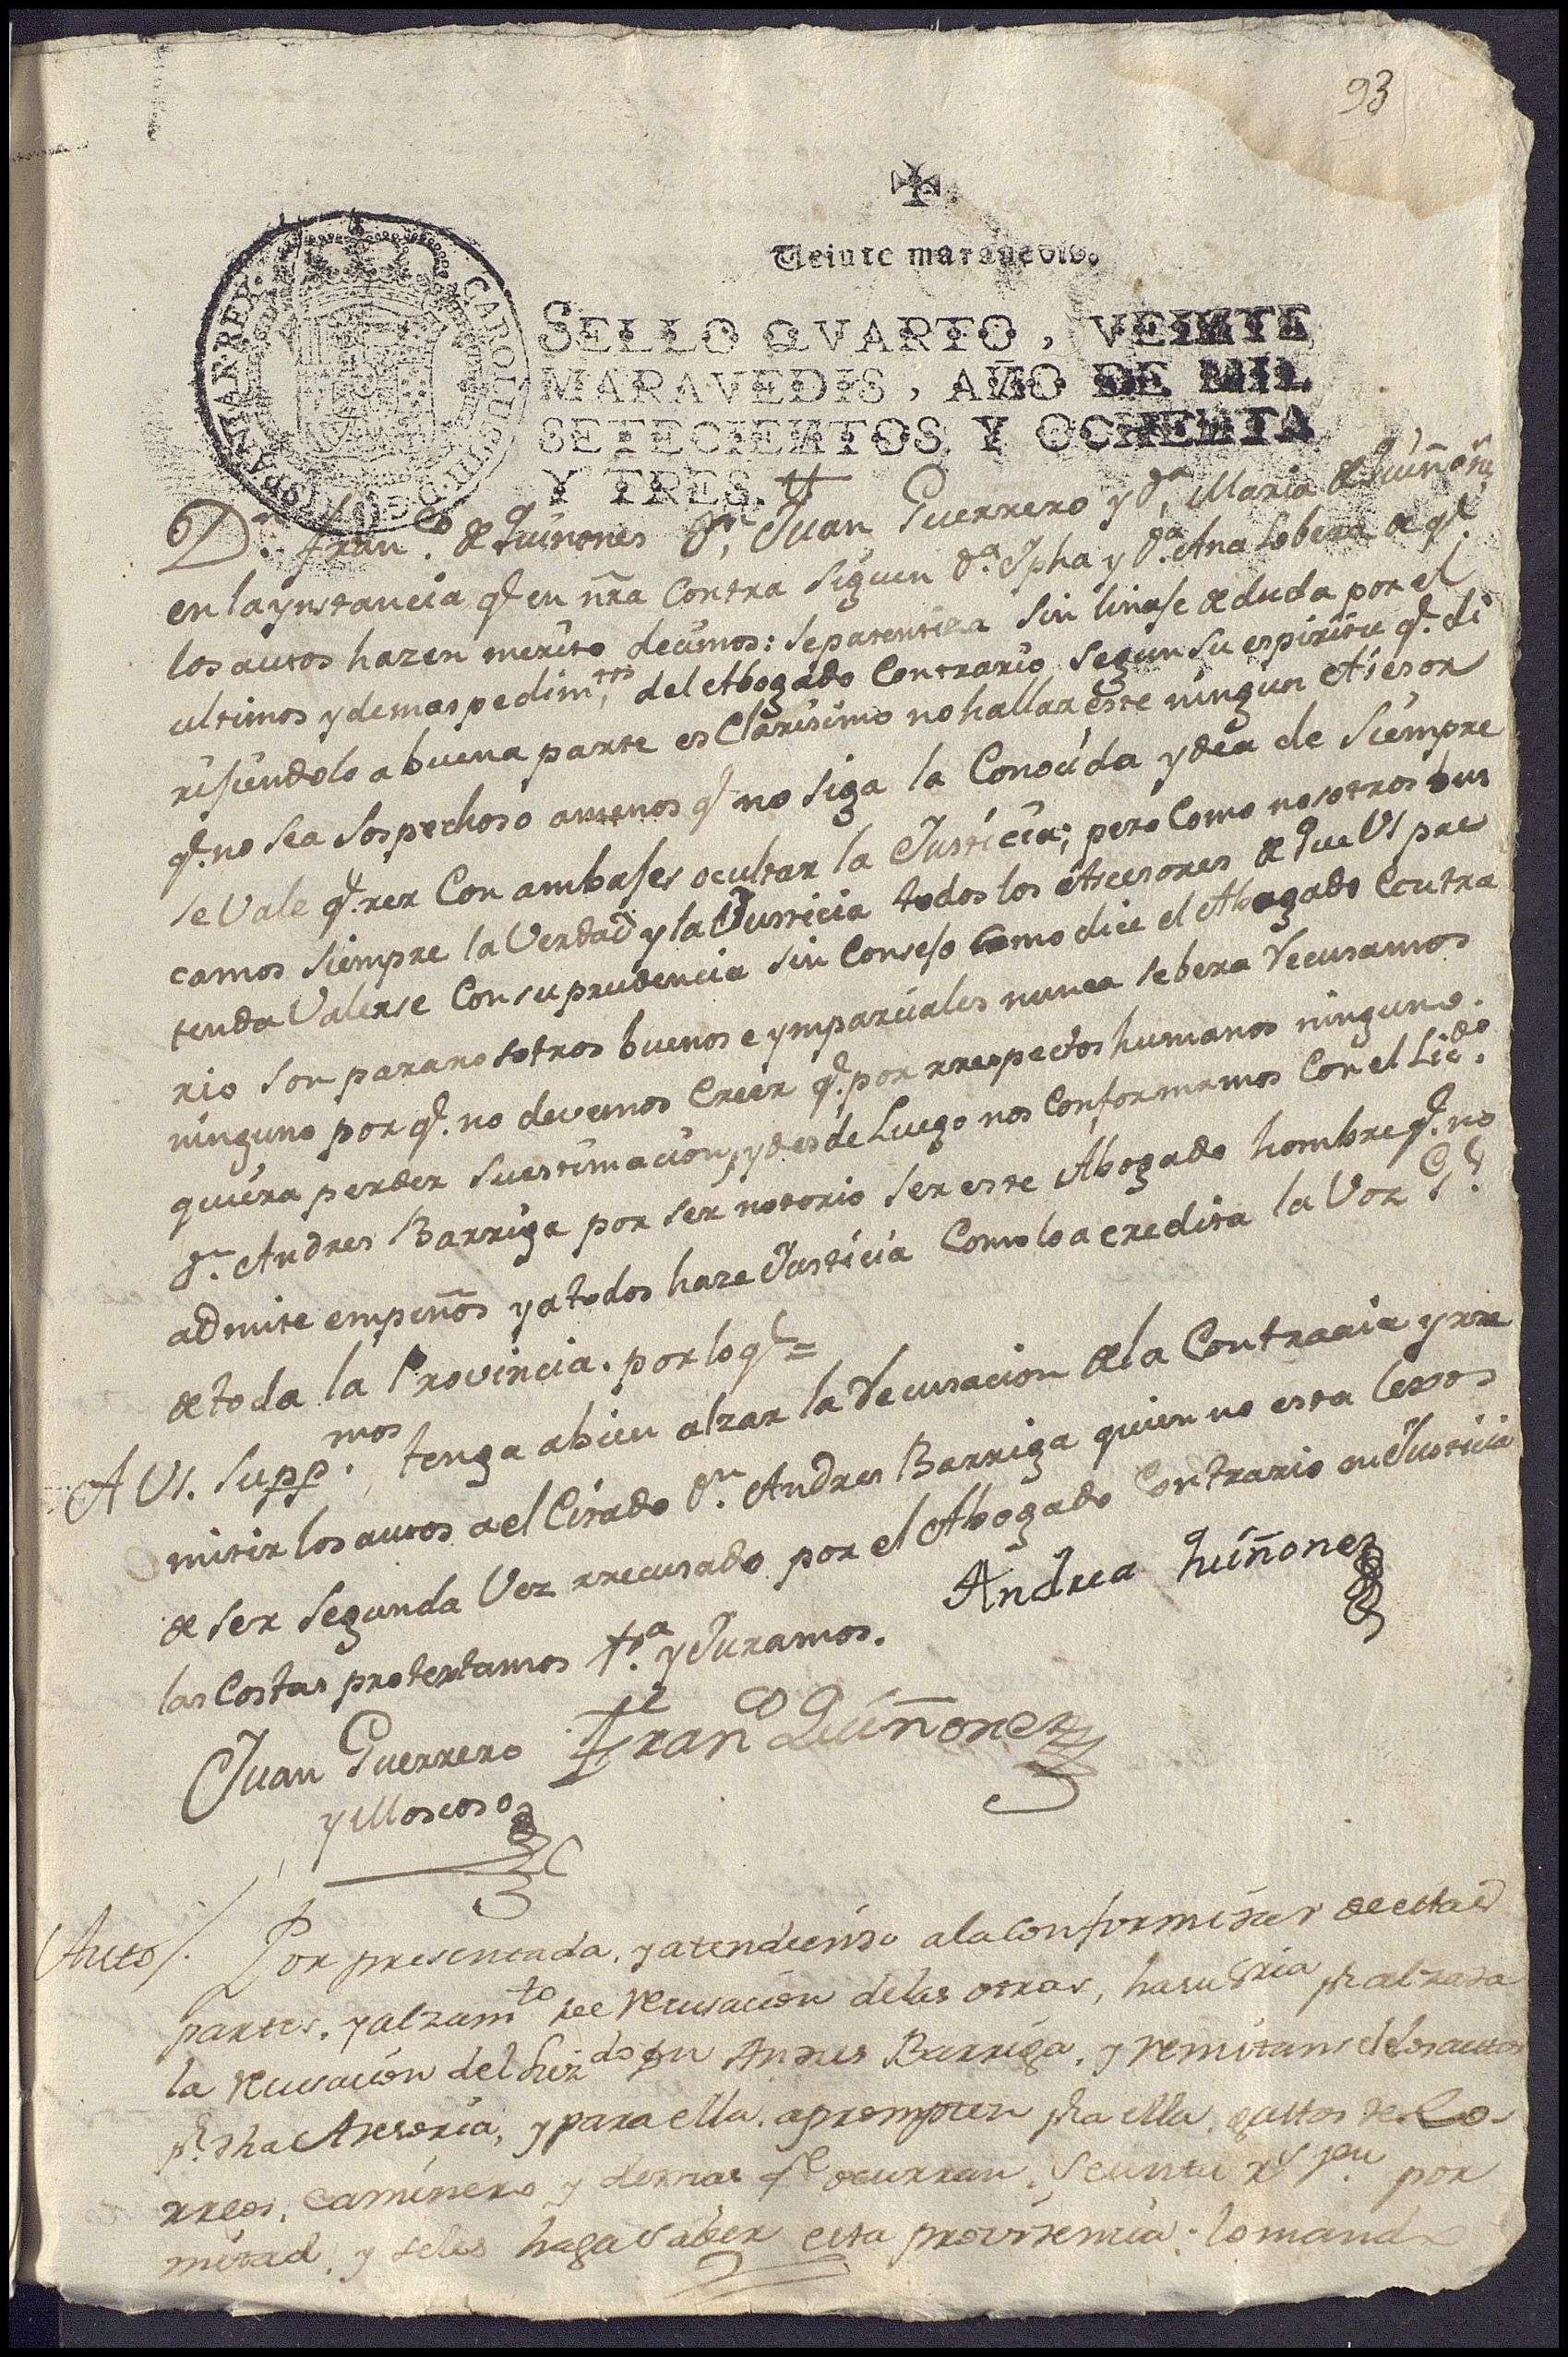 93
Veinte maravedis.
SELLO QVARTO, VEINTE
MARAVEDIS, AÑO DE MIL
SETECIENTOS Y OCHENTA
Y TRES.
CAROLUS III D G HISPANIAR REX
Dn. Franco. de Quiñones Dn. Juan Guerrero y Da. Maria de Quiñones
en la ynstancia q.e en nra contra siguen Da. Jpha y Da. Ana Lobera de q.e
los autos hazen merito decimos: se patentiza sin linaje de duda por el
ultimos y demas pedimtos. del Abogado Contrario segun su espiritu q.e di
rijiendolo a buena parte es Clarisimo no hallar este ningun Asesor
q.e no sea sospechoso amenos q.e no siga la Conocida ydea de siempre
se Vale q.e rer Con ambajes ocultar la Justicia; pero Como nosotros bus
camos siempre la Verdad y la Justicia todos los Asesores de que VS pre
tenda Valerse Con su prudencia sin Consejo como dice el Abogado Contra
rio son para nosotros buenos e ymparciales nunca se bera Recusamos
ninguno por q.e no devemos Creer q.e por rrespectos humanos ninguno
quiera perder su estimacion, y desde Luego nos Conformamos Con el Licdo.
Dn. Andres Barriga por ser notorio ser este Abogado hombre q.e no
admite empeños y a todos haze Justicia Como lo acredita la Voz Gl.
de toda la Provincia. por lo q.e =
A VS. Suppmos. tenga abien alzar la Recusacion de la Contraria y rre
mitir los autos a el Citado Dn. Andres Barriga quien no esta lexos
de ser segunda Vez rrecusado por el Abogado Contrario en Justicia
las Costas protextamos Ja. y Juramos.
Andrea Quiñones
Juan Guerrero
y Moscoso
Franco Quiñones
Auto/. Por presentada, y atendiendo a la conformidad de estas
partes, y alzamto de recusacion de las otras, hasu sria pr alzada
la recusacion del Lizdo Dn Andres Barriga, y remitanse los autos
pa dha Asesoria, y para ella aprompten pa ella gastos de Co-
rreos, caminero y demas qe ocurran, sesenta rs vn por
mitad, y seles haga saber esta providencia. lo mando